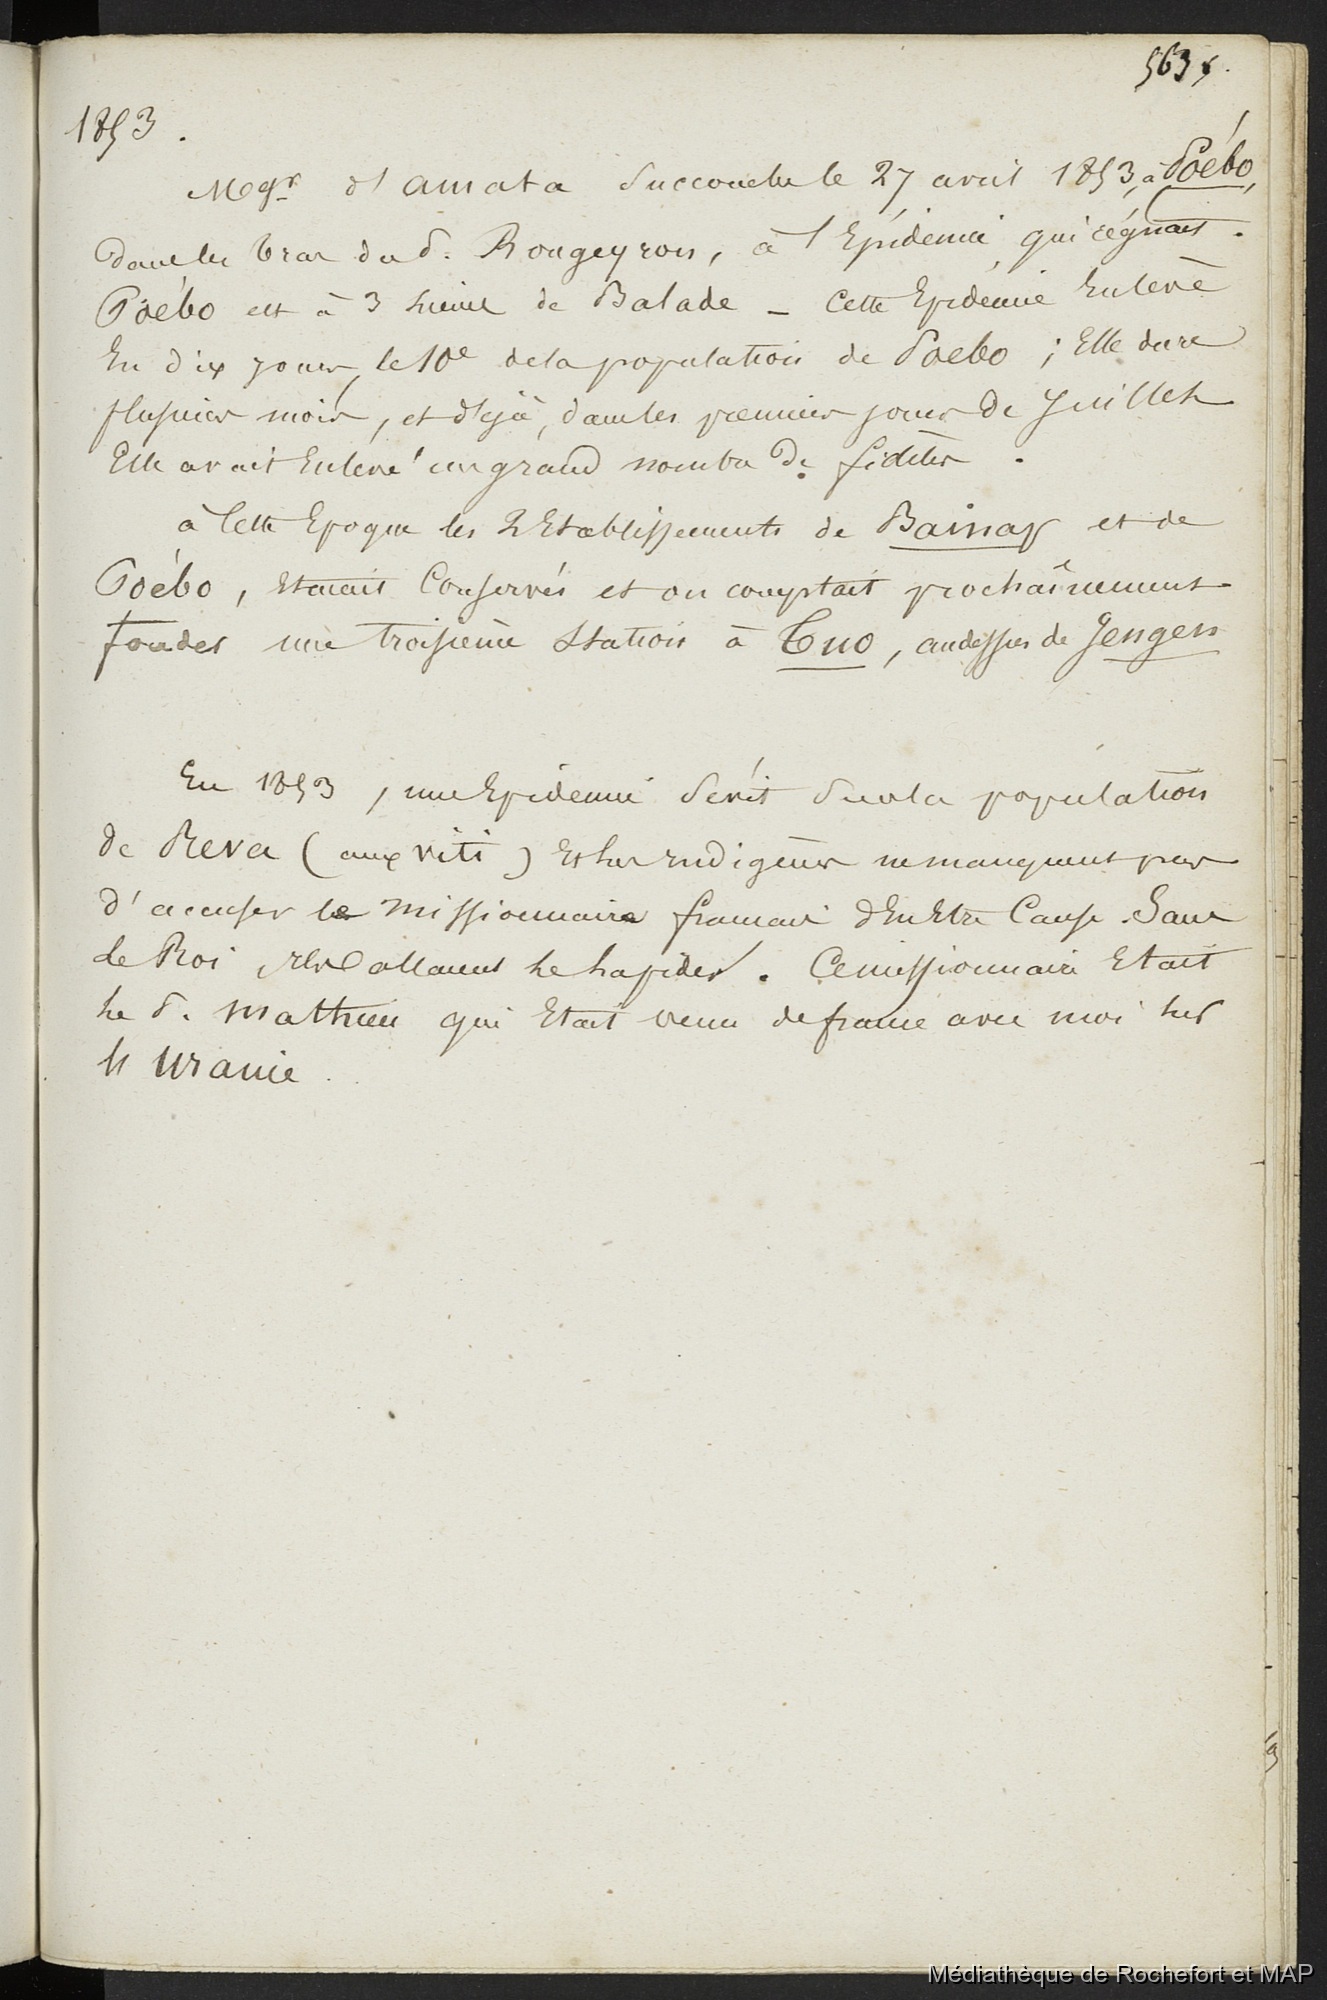 563
1853.
Mgr d'amata succombe le 27 avril 1853, à Poébo,
dans les bras du P. Rougeyron, à l'Epidémie qui régnait.
Poébo est à 3 lieues de Balade _ Cette Epidémie Enlève
En dix jours, le 10e de la population de Poebo ; Elle dure
plusieurs mois, et déjà, dans les premiers jours de Juillet
Elle avait Enlevé un grand nombre de fidèles.
à Cette Epoque les 2 Etablissements de et de
Poébo, Etaient Conservés et on comptait prochaînement
fonder une troisième Station à Tuo, audessus de Jengen
En 1853, une Epidémie sévit sur la population
de Reva (aux viti) Et les Indigènes ne manquent pas
d'accuser le Missionnaire français d'En Etre Cause. Sans
le Roi, Ils allaient le lapider. Ce missionnaire Etait
le P. Mathieu qui Etait venu de france avec moi sur
l'Uranie.
Médiathèque de Rochefort et MAP